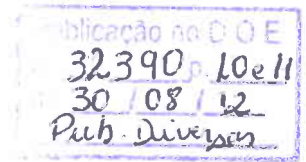 blicação no D O E
32390 10 e 11
30 / 08 / 12
Pub. Diversas